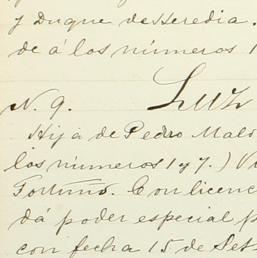 y Duque de Heredia.
de á los números 1
N. 9. Luz
Hija de Pedro Malo
los números 1 y 7.)
Fortuño. Con licenc
dá poder especial p
con fecha 15 de Set